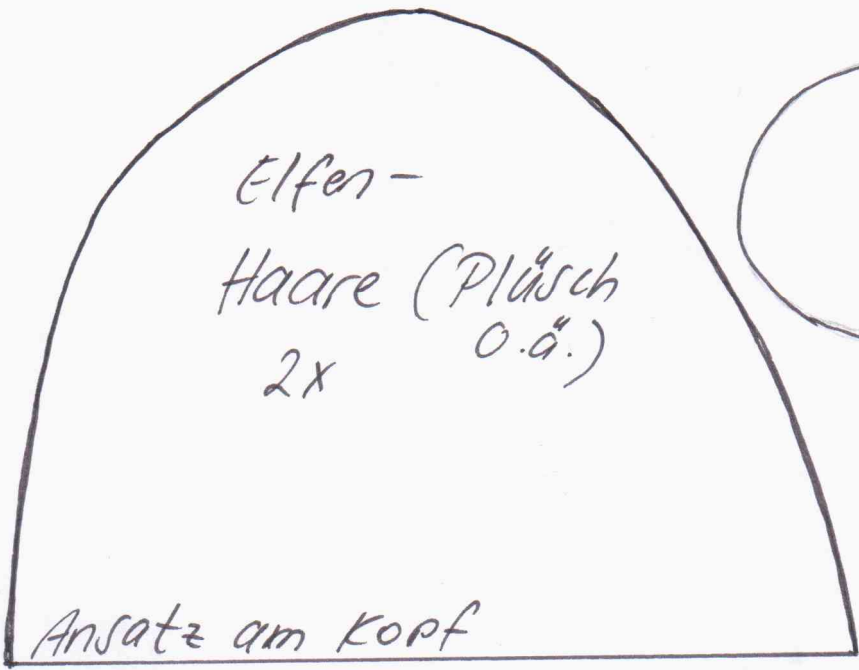 Elfen-
Haare (Plüsch
o.ä.)
2x
Ansatz am Kopf